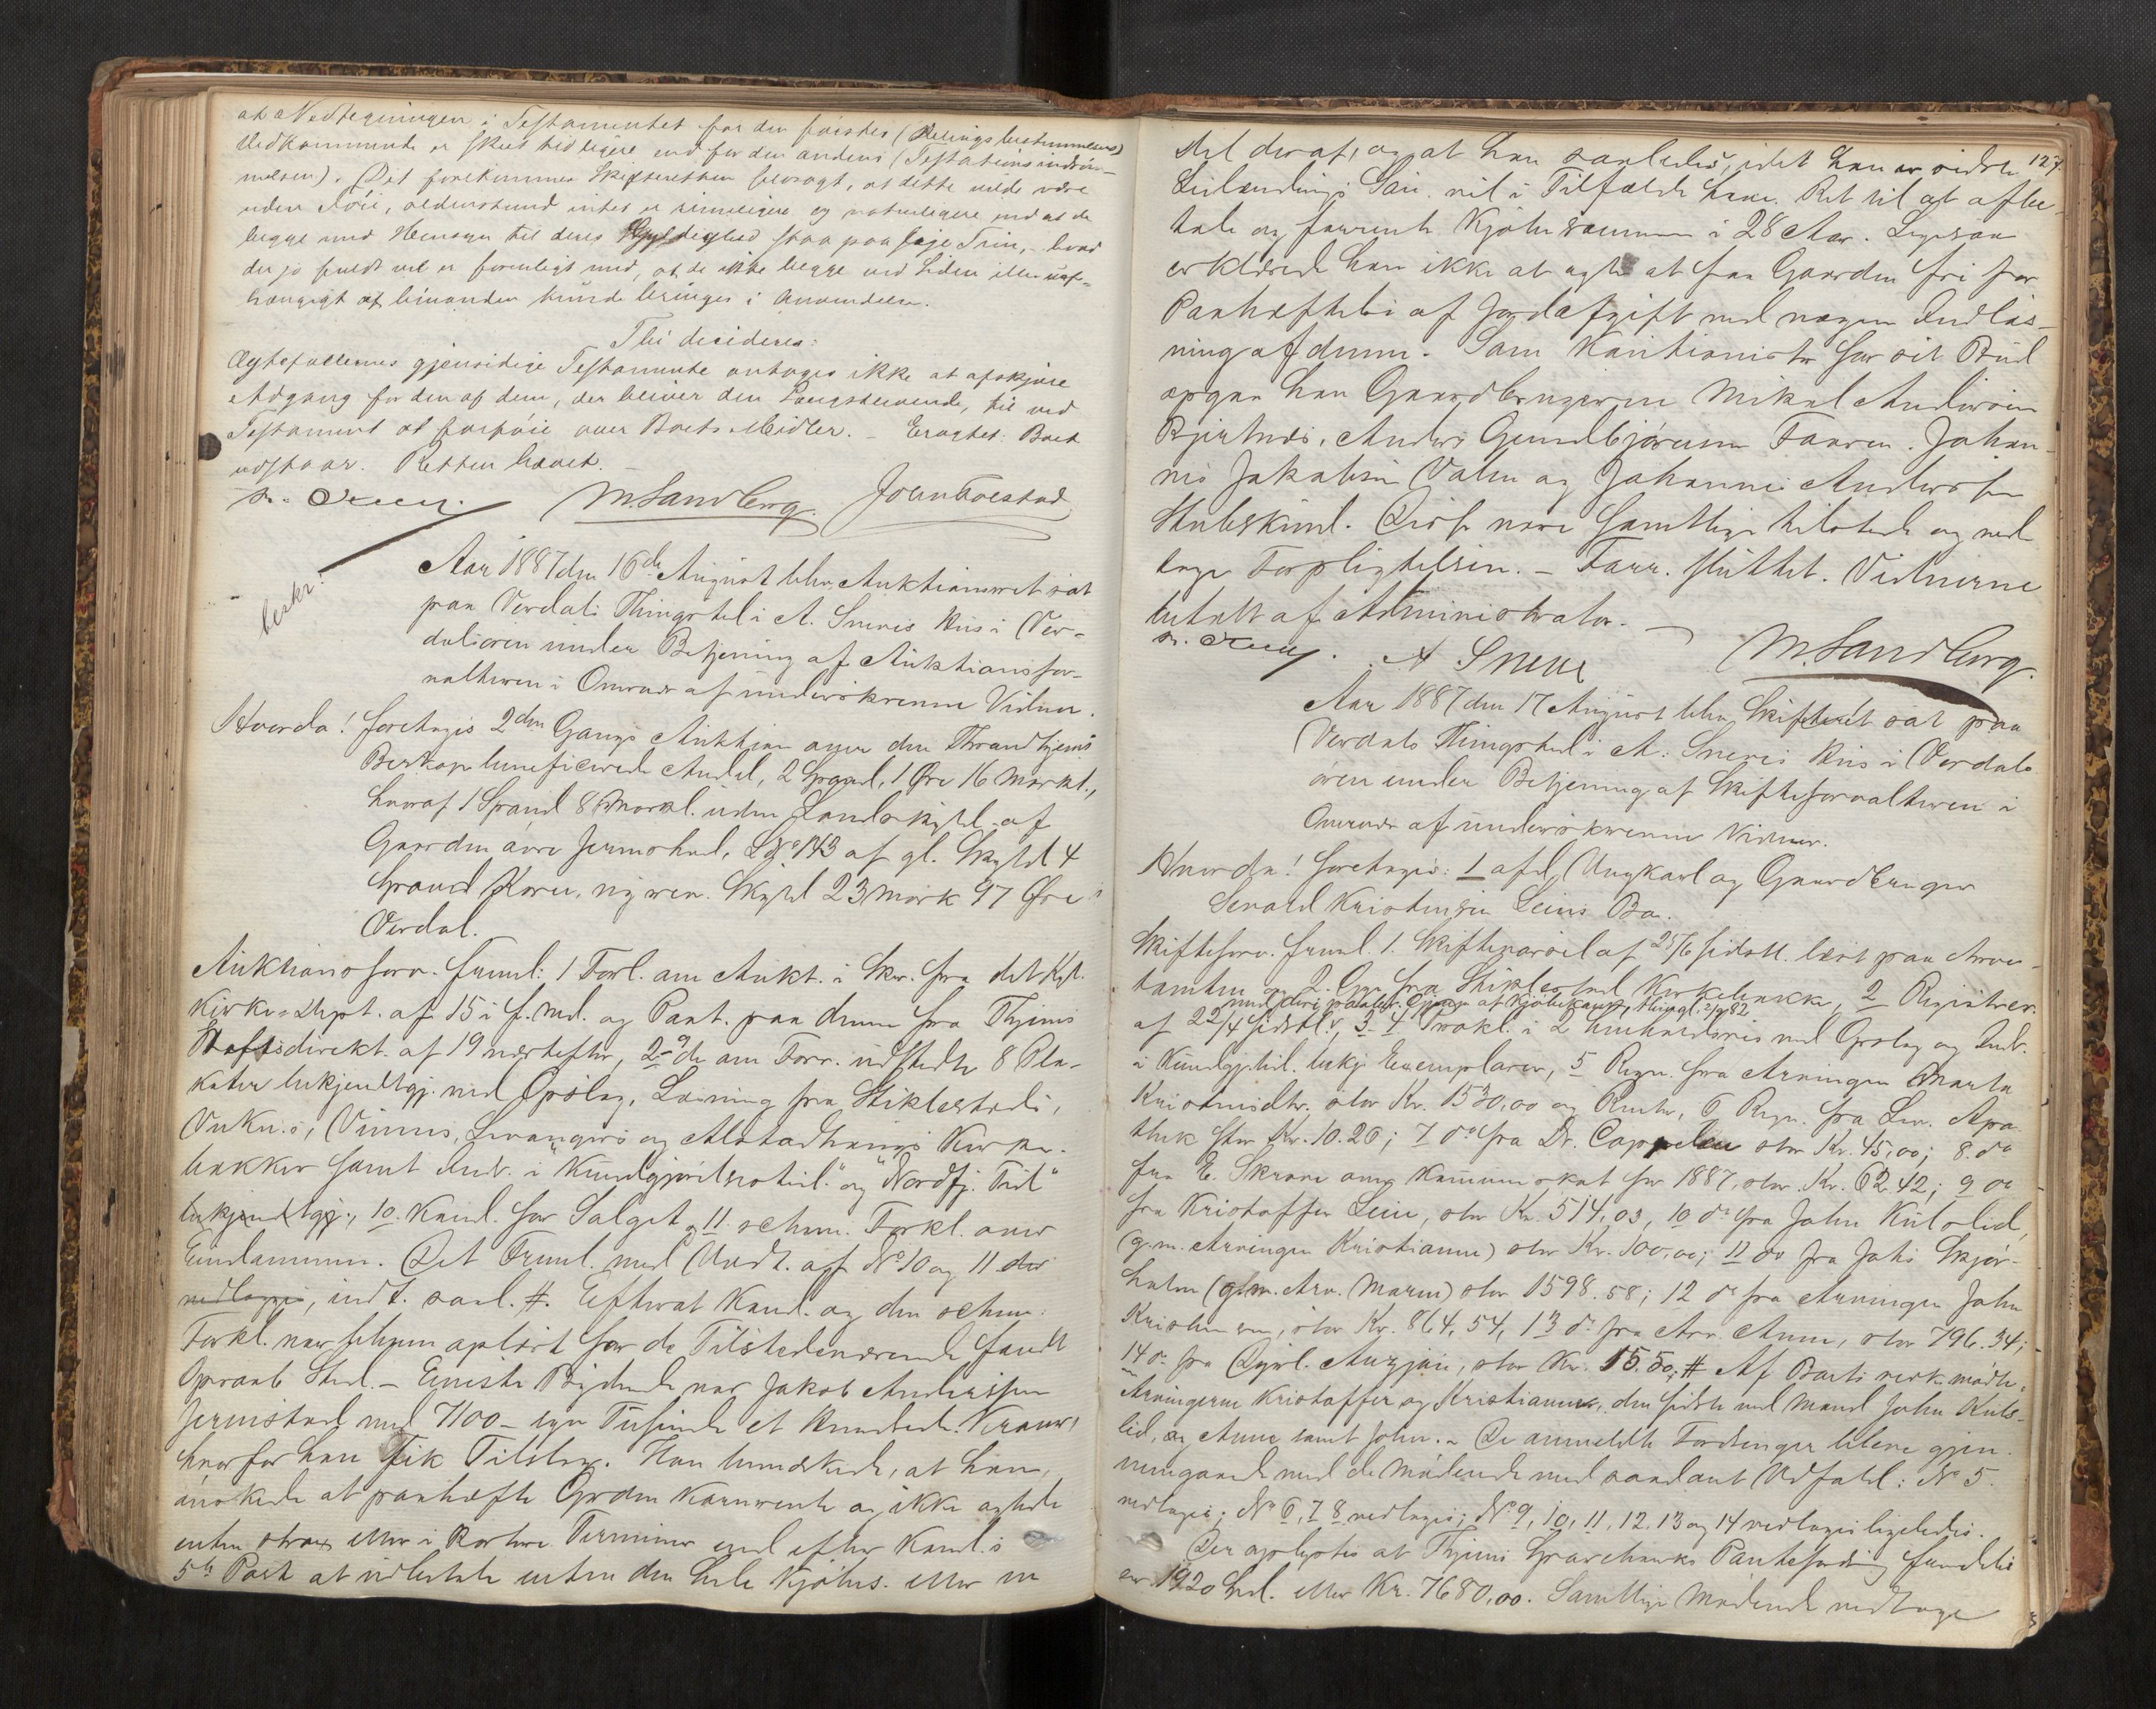 at Nedtegningen i Testamentet for den førstes (Delingsbestemmelsens)
Vedkommende er skeet tidligere end for den andens (Testationsindrøm-
melsen). Det forekommer Skifteretten forøvrigt, at dette vilde være
uden Føie, aldenstund intet er rimeligere og naturligere end at de
begge med Hensyn til deres Gyldighed staa paa Trin, hvad
der jo fuldt vel er foreneligt med, at de ikke begge ved Siden eller uaf-
hængigt af hinanden kunde bringes i Anvendelse.
Thi decideres:
Ægtefællernes gjensidige Testamente antages ikke at afskjære
Adgang for den af dem, der bliver den Længstlevende, til ved
Testament at forføie over Boets Midler. – Eragtet: Boet
udstaar. Retten hævet. –
M. Sandberg. John Toestad
beskr.
Aar 1887 den 16de August blev Auktionsret sat
paa Verdals Thingsted i A. Sneves Hus i Ver-
dalsøren under Betjening af Auktionsfor-
valteren i Overvær af underskrevne Vidner.
Hvorda! foretages 2den Gangs Auktion over den Throndhjems
Bispestol beneficerede Andel, 2 Spand, 1 Øre 16 Markl.,
hvoraf 1 Spand 8 Markl. uden Landskyld af
Gaarden øvre Jermstad, L. No 143 af gl. Skyld 4
Spand Korn, ny rev. Skyld 23 Mark 97 Øre i
Verdal.
Auktionsforv. freml: 1 Forl. om Aukt. i Skr. fra det Kgl.
Kirke-Dept. af 15 i f. Md. og Paat. paa denne fra Thjems
Stiftsdirekt. af 19 næstefter, 2-9 de om Forr. udstedte 8 Pla-
kater bekjendtgj. ved Opslag, Læsning fra Stiklestads,
Vuku's, Vinnes, Levangers og Alstadhaugs Kirke-
bakker samt Indr. i "Kundgjørelsestid." og "Nordfj. Tid"
bekjendtgj., 10. Kond. for Salget og 11 schem. Forkl. over
Eiendommen. Det Freml. med Undt. af No 10 og 11 der
nedlagges, indt. saal. #. Efterat Kond. og den schem.
Forkl. var bleven oplæst for de Tilstedeværende fandt
Opraab Sted. – Eneste Bydende var Jakob Anderssen
Jermstad med 7100 – syv Tusinde et Hundrede Kroner,
hvorfor han fik Tilslag. Han bemærkede, at han
ønskede at panthæfte Grden Kornrente og ikke agtede
enten strax eller i kortere Terminer end efter Kond.s
5te Post at udbetale enten den hele Kjøbes. eller en
127.
Del deraf, og at han saaledes, idet han er sidste
Leilændings Søn. vil i Tilfælde have Ret til at afbe-
tale og forrente Kjøbesummen i 28 Aar. Ligesaa
erklærede han ikke at agte at faa Gaarden fri for
Panthæftelse af Jordafgift ved nogen Indløs-
ning af denne. Som Kautionister for sit Bud
opgav han Gaardbrugerne Mikal Andersen
Bjertnæs, Anders Gundbjørnsen Faaren, Johan-
nes Jakobsen Valen og Johannes Anderssen
Stubskind. Disse vare samtlige tilstede og ved-
toge Forpligtelsen. – Forr. sluttet. Vidnerne
betalt af Administrator. –
A Sneve M. Sandberg.
Aar 1887 den 17 August blev Skifteret sat paa
Verdals Thingsted i A. Sneves Hus i Verdals-
øren under Betjening af Skifteforvalteren i
Overvær af underskrevne Vidner.
Hvorda! foretages: 1 afd. Ungkarl og Gaardbruger
Sevald Kristensen Leins Bo.
Skifteforv. freml. 1. Skiftevarsel af 25/6 sidstl. læst paa Arve-
tomten og 2. Gge fra Stiklestad Kirkebakke, 2 Registrer.
med deri paaber. Gjenp. af Kjøbekontr., thingl. 2/9 82
af 22/4 sidstl., 3-4 Prokl. i 2 Enslydende med Opslag og Indr.
i Kundgjtid. bekj. Exemplarer, 5 Regn. fra Arvingen Marta
Kristensdtr. stor Kr. 1530,00 og Renter, 6 Regn. fra Lev. Apo-
thek stor Kr. 10.20; 7 do fra Dr. Cappelen stor Kr. 45,00; 8. do
fra E. Skrove ang. Kommuneskat for 1887, stor Kr. 62.42; 9 do
fra Kristoffer Lein, stor Kr. 514,03, 10 do fra John Kulslid,
(g. m. Arvingen Kristianne) stor Kr. 100,00; 11 do fra Johs Skjør-
holm (g. m. Arv. Maren) stor 1598.58; 12 do fra Arvingen John
Kristensen, stor Kr. 864,54, 13 do fra Arv. Anne, stor 796.34;
14 do fra Dyrl. Auzjon, stor Kr. 15.50; # Af Boets Vedk. mødte
Arvingerne Kristoffer og Kristianne, den sidste ved Mand John Kuls-
lid, og Anne samt John. – De anmeldte Fordringer bleve gjen-
nemgaaede med de Mødende med saadant Udfald: No 5.
vedtages; No 6, 7 8 vedtages; No 9, 10, 11, 12, 13 og 14 vedtages ligeledes.
Der oplystes at Thjems Sparebanks Pantefordring fremdeles
er 1920 Spd. eller Kr. 7680,00. Samtlige Mødende vedtoge